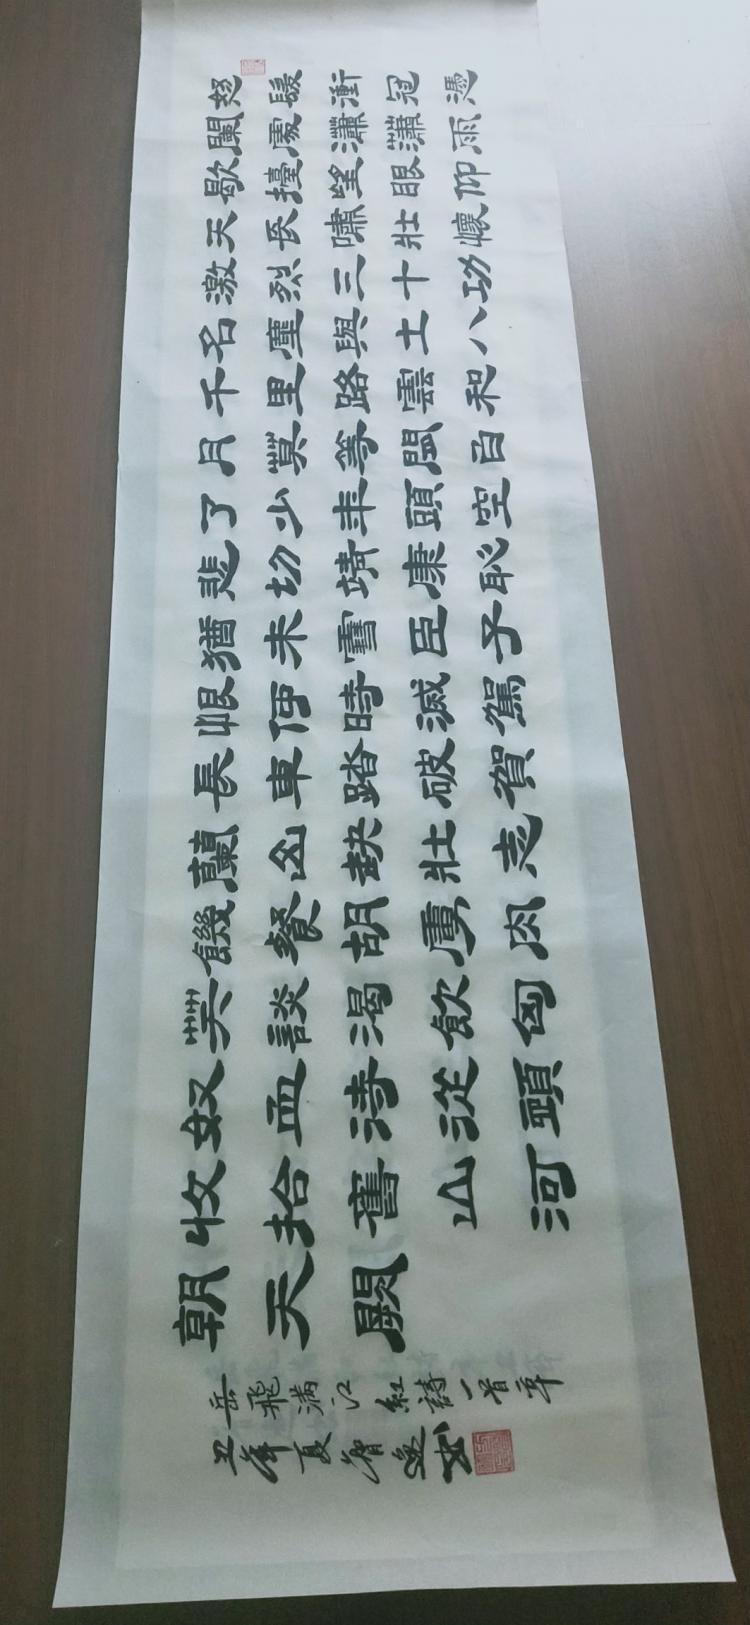 怒髮衝冠憑
闌處瀟瀟雨
歇擡望眼仰
天長嘯壯懷
激烈三十功
名塵與土八
千里路雲和
月莫等閒白
了少年頭空
悲切靖康恥
猶未雪臣子
恨何時滅駕
長車踏破賀
蘭山缺壯志
饑餐胡虜肉
笑談渴飲匈
奴血待從頭
收拾舊山河
朝天闕
岳飛满江紅詩一首辛
丑年夏書